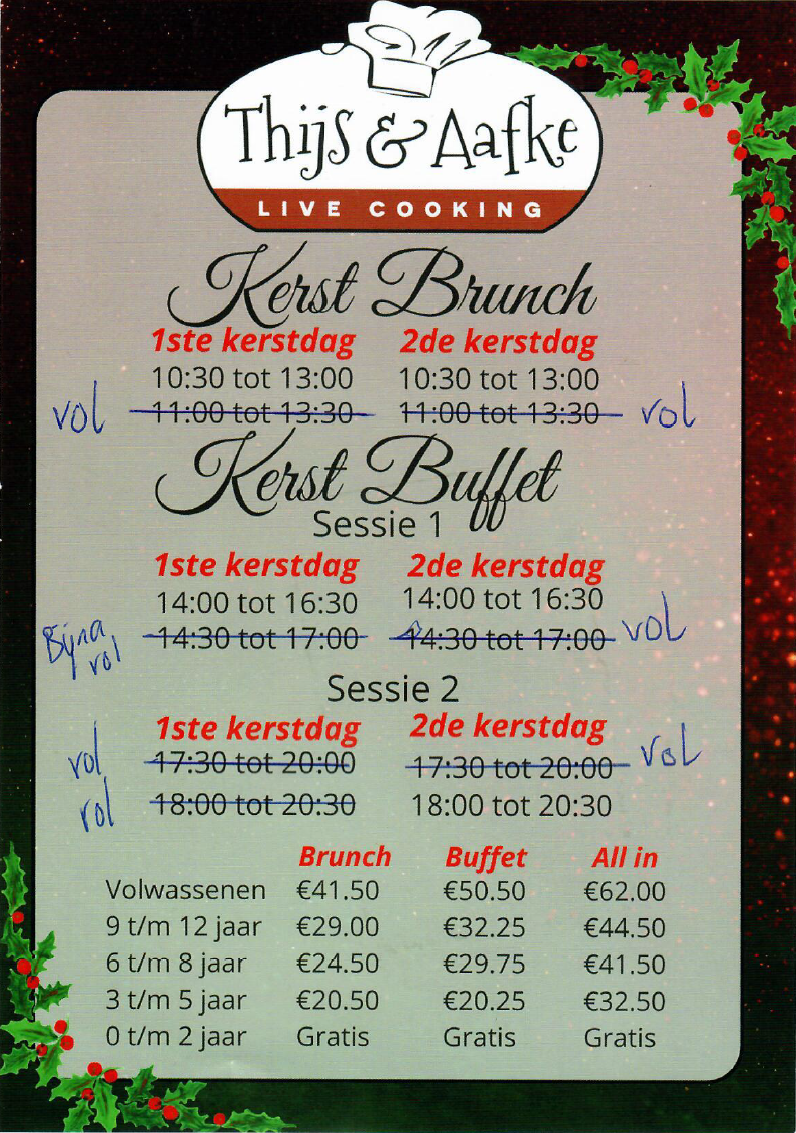 Thijs & Aafke
LIVE COOKING
Kerst Brunch
1ste kerstdag 2de kerstdag
10:30 tot 13:00 10:30 tot 13:00
vol 11:00 tot 13:30 11:00 tot 13:30 vol
Kerst Buffet
Sessie 1
1ste kerstdag 2de kerstdag
14:00 tot 16:30 14:00 tot 16:30
Bijna vol 14:30 tot 17:00 14:30 tot 17:00 vol
Sessie 2
1ste kerstdag 2de kerstdag
vol 17:30 tot 20:00 17:30 tot 20:00 vol
vol 18:00 tot 20:30 18:00 tot 20:30
Brunch Buffet All in
Volwassenen €41.50 €50.50 €62.00
9 t/m 12 jaar €29.00 €32.25 €44.50
6 t/m 8 jaar €24.50 €29.75 €41.50
3 t/m 5 jaar €20.50 €20.25 €32.50
0 t/m 2 jaar Gratis Gratis Gratis